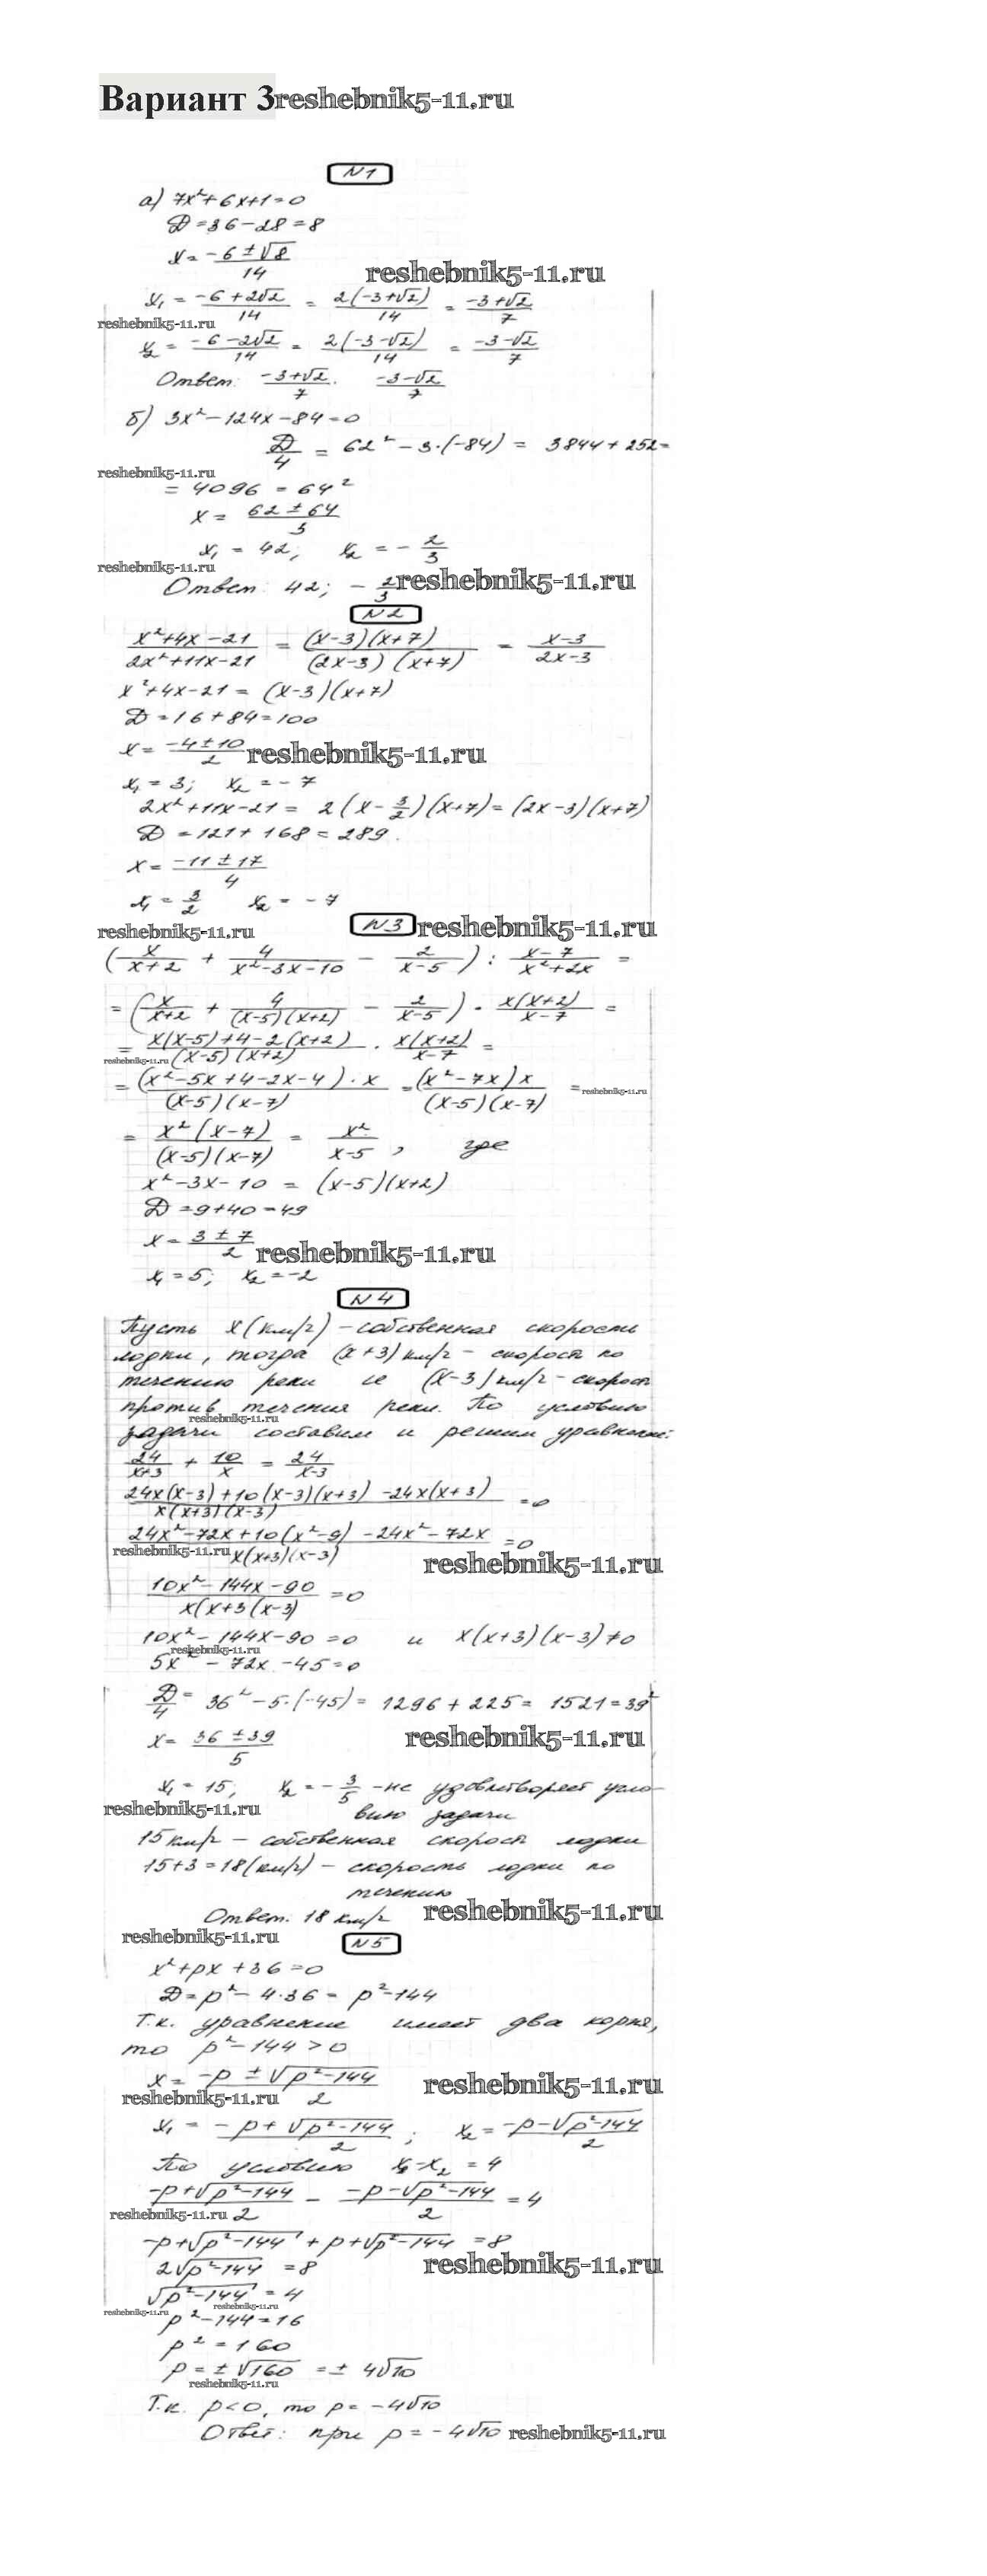 Вариант 3 reshebnik5-11.ru
N1
а) 7x²+6x+1=0
D=36-28=8
x= (-6±√8)/14
reshebnik5-11.ru
x₁ = (-6+2√2)/14 = 2(-3+√2)/14 = (-3+√2)/7
reshebnik5-11.ru
x₂ = (-6-2√2)/14 = 2(-3-√2)/14 = (-3-√2)/7
Ответ: (-3+√2)/7. (-3-√2)/7
б) 3x²-124x-84=0
D/4 = 62²-3·(-84) = 3844+252=
reshebnik5-11.ru
= 4096 = 64²
x= (62±64)/3
x₁ = 42; x₂ = -2/3
reshebnik5-11.ru
Ответ: 42; -2/3 reshebnik5-11.ru
N2
(x²+4x-21)/(2x²+11x-21) = (x-3)(x+7)/(2x-3)(x+7) = (x-3)/(2x-3)
x²+4x-21= (x-3)(x+7)
D=16+84=100
x= (-4±10)/2 reshebnik5-11.ru
x₁=3; x₂=-7
2x²+11x-21= 2(x-3/2)(x+7)=(2x-3)(x+7)
D=121+168=289.
x= (-11±17)/4
x₁=3/2 x₂=-7
reshebnik5-11.ru N3 reshebnik5-11.ru
(x/(x+2) + 4/(x²-3x-10) - 2/(x-5)) : (x-7)/(x²+2x) =
= (x/(x+2) + 4/(x-5)(x+2) - 2/(x-5)) · x(x+2)/(x-7) =
= (x(x-5)+4-2(x+2))/(x-5)(x+2) · x(x+2)/(x-7) =
reshebnik5-11.ru
= (x²-5x+4-2x-4)·x/(x-5)(x-7) = (x²-7x)x/(x-5)(x-7) = reshebnik5-11.ru
= x²(x-7)/(x-5)(x-7) = x²/(x-5), где
x²-3x-10 = (x-5)(x+2)
D=9+40=49
x= (3±7)/2 reshebnik5-11.ru
x₁=5; x₂=-2
N4
Пусть x(км/ч) - собственная скорость
лодки, тогда (x+3)км/ч - скорость по
течению реки и (x-3)км/ч - скорость
против течения реки. По условию
reshebnik5-11.ru
задачи составим и решим уравнение:
24/(x+3) + 10/x = 24/(x-3)
(24x(x-3)+10(x-3)(x+3)-24x(x+3))/x(x+3)(x-3) =0
(24x²-72x+10(x²-9)-24x²-72x)/x(x+3)(x-3) =0
reshebnik5-11.ru reshebnik5-11.ru
(10x²-144x-90)/x(x+3(x-3) =0
10x²-144x-90=0 и x(x+3)(x-3)≠0
reshebnik5-11.ru
5x²-72x-45=0
D/4= 36²-5·(-45)= 1296+225= 1521=39²
x= (36±39)/5 reshebnik5-11.ru
x₁=15; x₂=-3/5 - не удовлетворяет усло-
reshebnik5-11.ru вию задачи
15км/ч - собственная скорость лодки
15+3=18(км/ч) - скорость лодки по
течению
Ответ: 18 км/ч reshebnik5-11.ru
reshebnik5-11.ru N5
x²+px+36=0
D=p²-4·36= p²-144
Т.к. уравнение имеет два корня,
то p²-144>0
x= (-p±√(p²-144))/2 reshebnik5-11.ru
reshebnik5-11.ru
x₁ = (-p+√(p²-144))/2; x₂= (-p-√(p²-144))/2
По условию x₁-x₂=4
(-p+√(p²-144))/2 - (-p-√(p²-144))/2 =4
reshebnik5-11.ru
-p+√(p²-144)+p+√(p²-144) =8
2√(p²-144) =8 reshebnik5-11.ru
√(p²-144) =4
reshebnik5-11.ru reshebnik5-11.ru
p²-144=16
p²=160
p=±√160 =±4√10
reshebnik5-11.ru
Т.к. p<0, то p=-4√10
Ответ: при p=-4√10 reshebnik5-11.ru